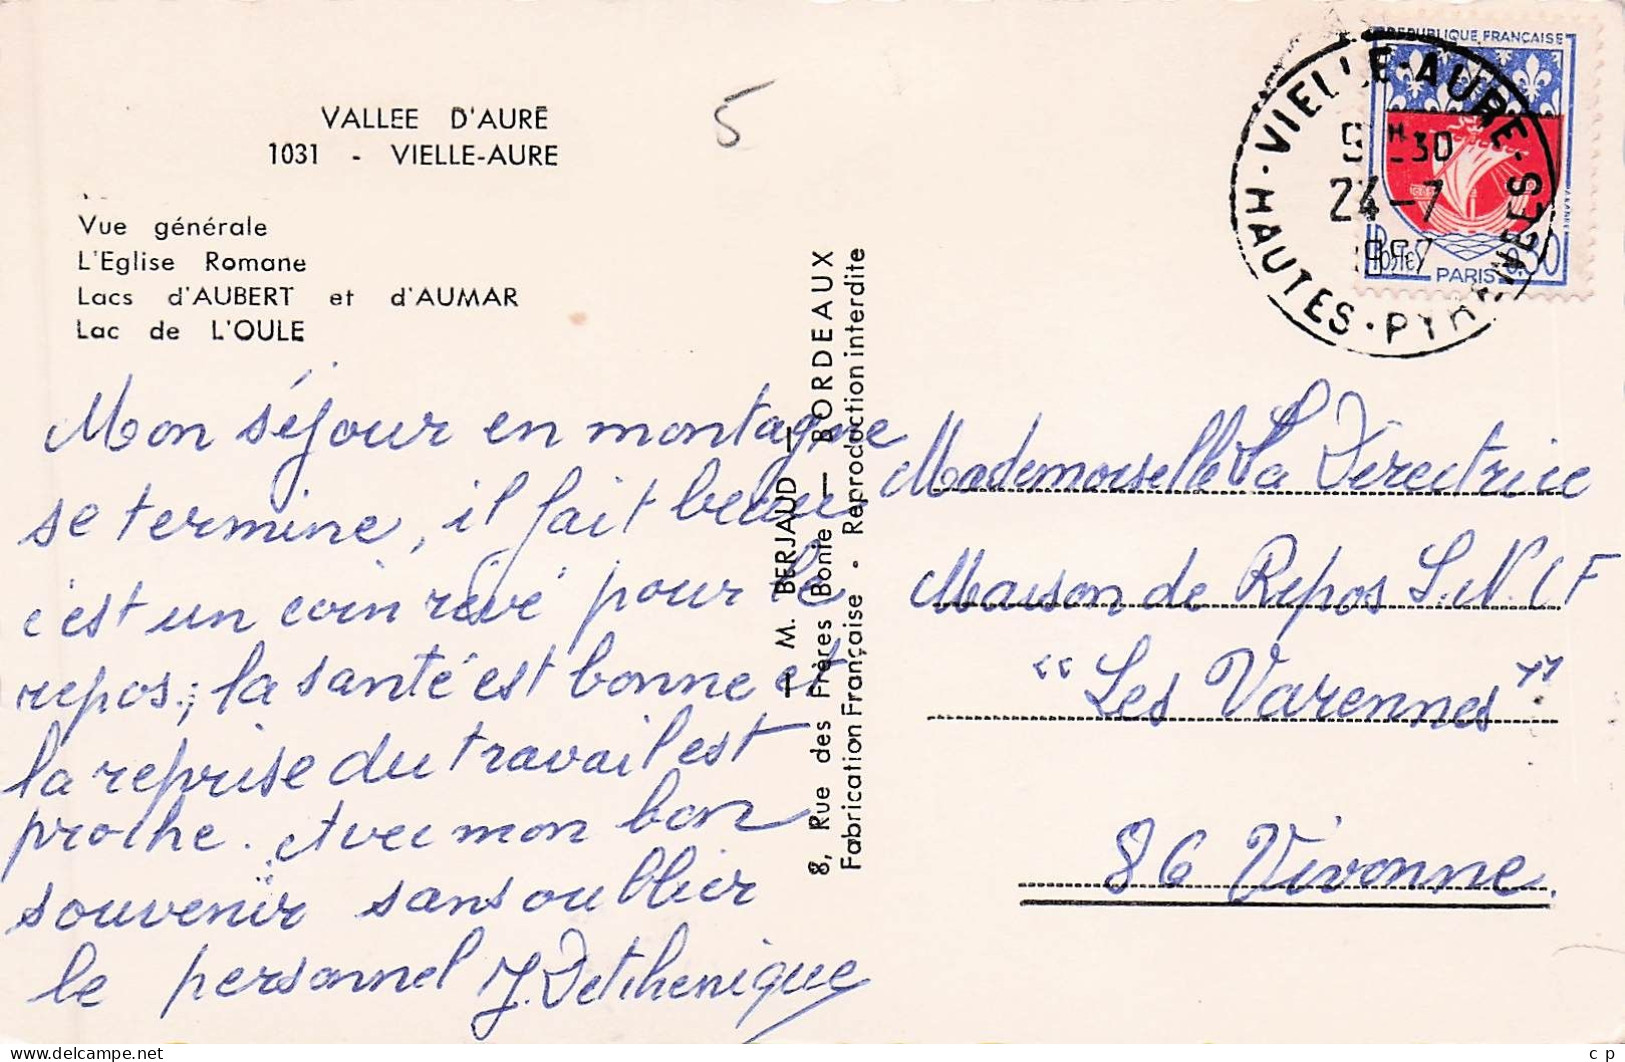 VALLEE D'AURE
1031 - VIELLE-AURE
5
Vue générale
L'Eglise Romane
Lacs d'AUBERT et d'AUMAR
Lac de L'OULE
Mon séjour en montagne
se termine, il fait beau
c'est un coin rêvé pour le
repos, la santé est bonne et
la reprise du travail est
proche. Avec mon bon
souvenir sans oublier
le personnel
M. BERJAUD
8, Rue des Frères Bonie - BORDEAUX
Fabrication Française - Reproduction interdite
REPUBLIQUE FRANÇAISE
POSTES
PARIS 0,30
VIELLE-AURE
24-7
HAUTES-PYRENEES
Mademoiselle La Directrice
Maison de Repos S.N.C F
"Les Varennes"
86 Vivonne.
c p